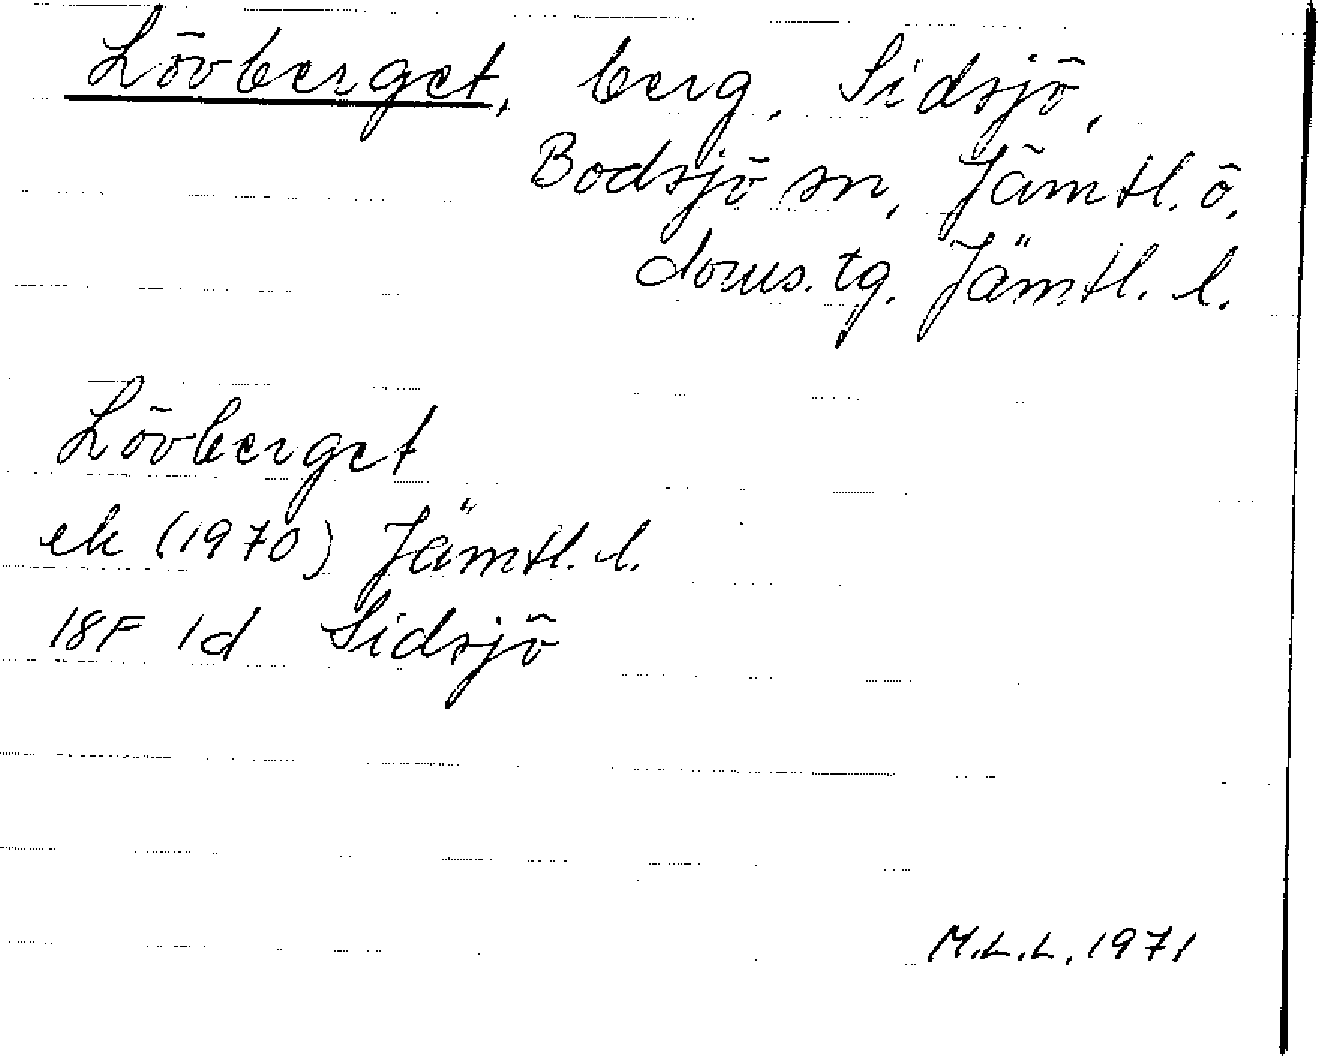 Lövberget, berg, Sidsjö,
Bodsjö sn, Jämtl. ö.
doms. tg. Jämtl. l.
Lövberget
ek (1970) Jämtl. l.
18F 1d Sidsjö
M.L.L. 1971